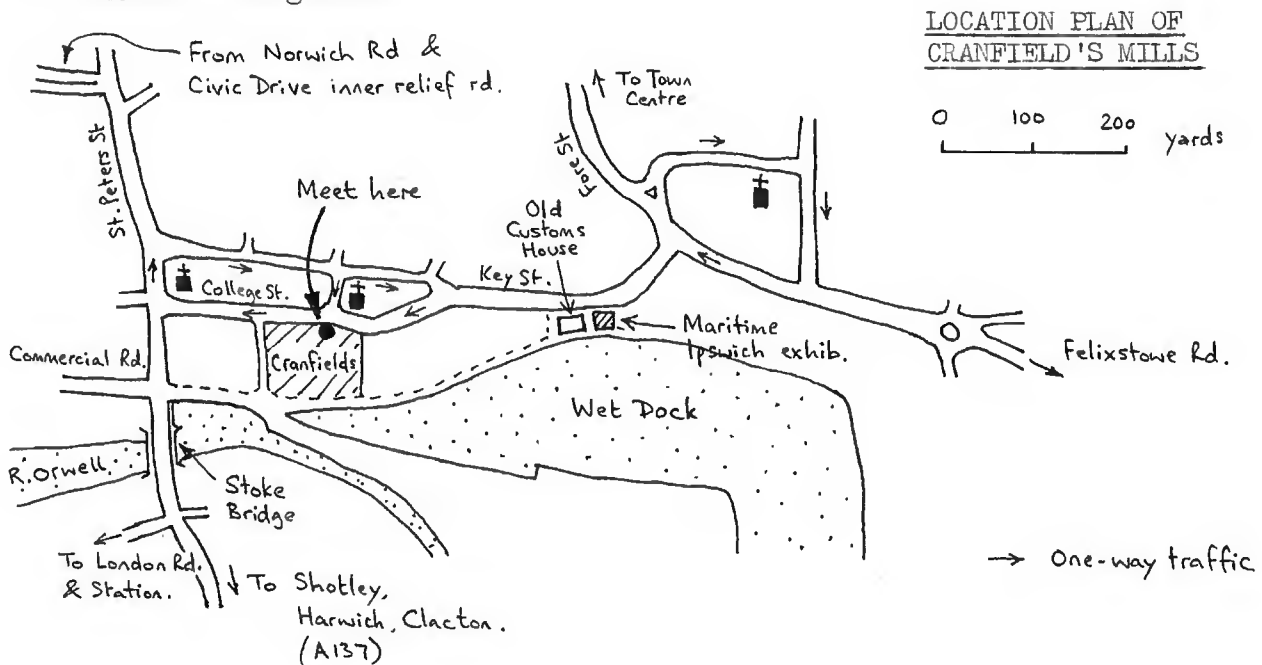 LOCATION PLAN OF
CRANFIELD'S MILLS
0 100 200 yards
From Norwich Rd &
Civic Drive inner relief rd.
To Town
Centre
St. Peters St
Fore St
Meet here
Old
Customs
House
Key St.
College St.
Cranfields
Maritime
Ipswich exhib.
Commercial Rd.
Felixstowe Rd.
Wet Dock
R. Orwell
Stoke
Bridge
To London Rd.
& Station.
To Shotley,
Harwich, Clacton.
(A137)
One-way traffic